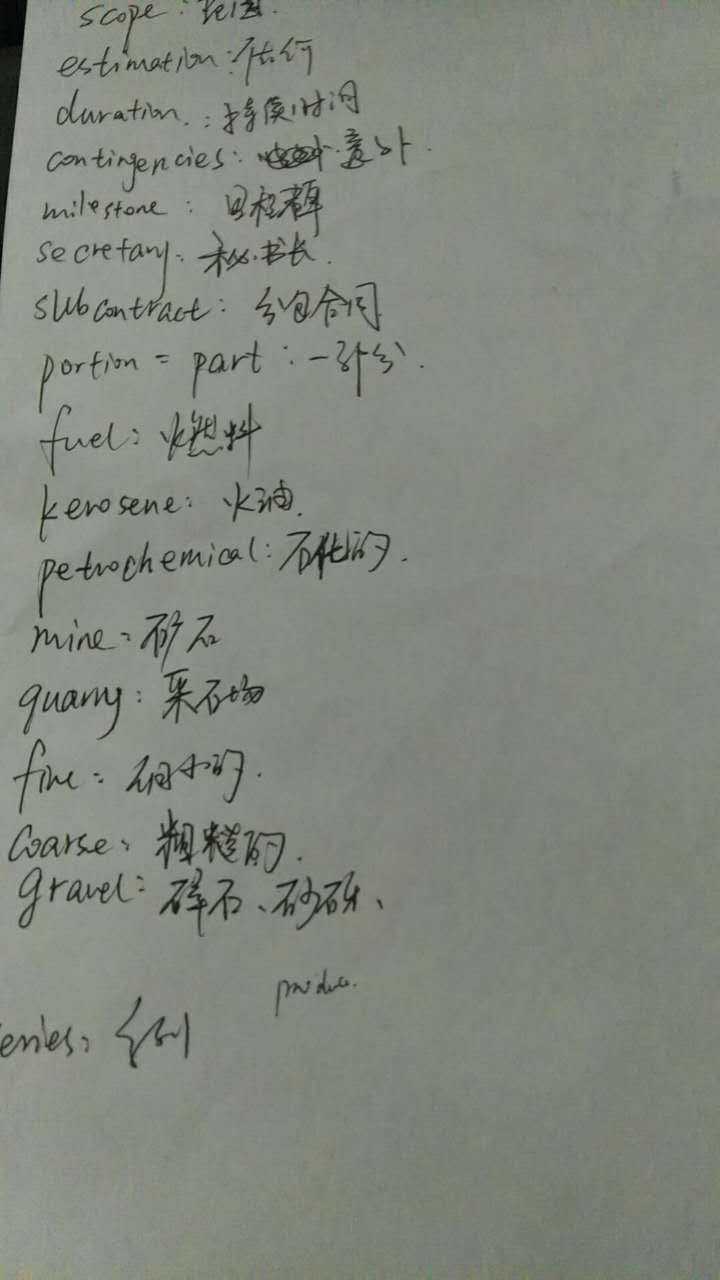 scope: 范围.
estimation: 估行
duration.: 持续时间
contingencies: 意外.
milestone: 里程碑
secretary: 秘书长.
subcontract: 分包合同
portion = part: 一部分.
fuel: 燃料
kerosene: 火油.
petrochemical: 石化的.
mine: 矿石
quarry: 采石场
fine: 细小的.
coarse: 粗糙的.
gravel: 碎石、砂砾、
eries: 系列